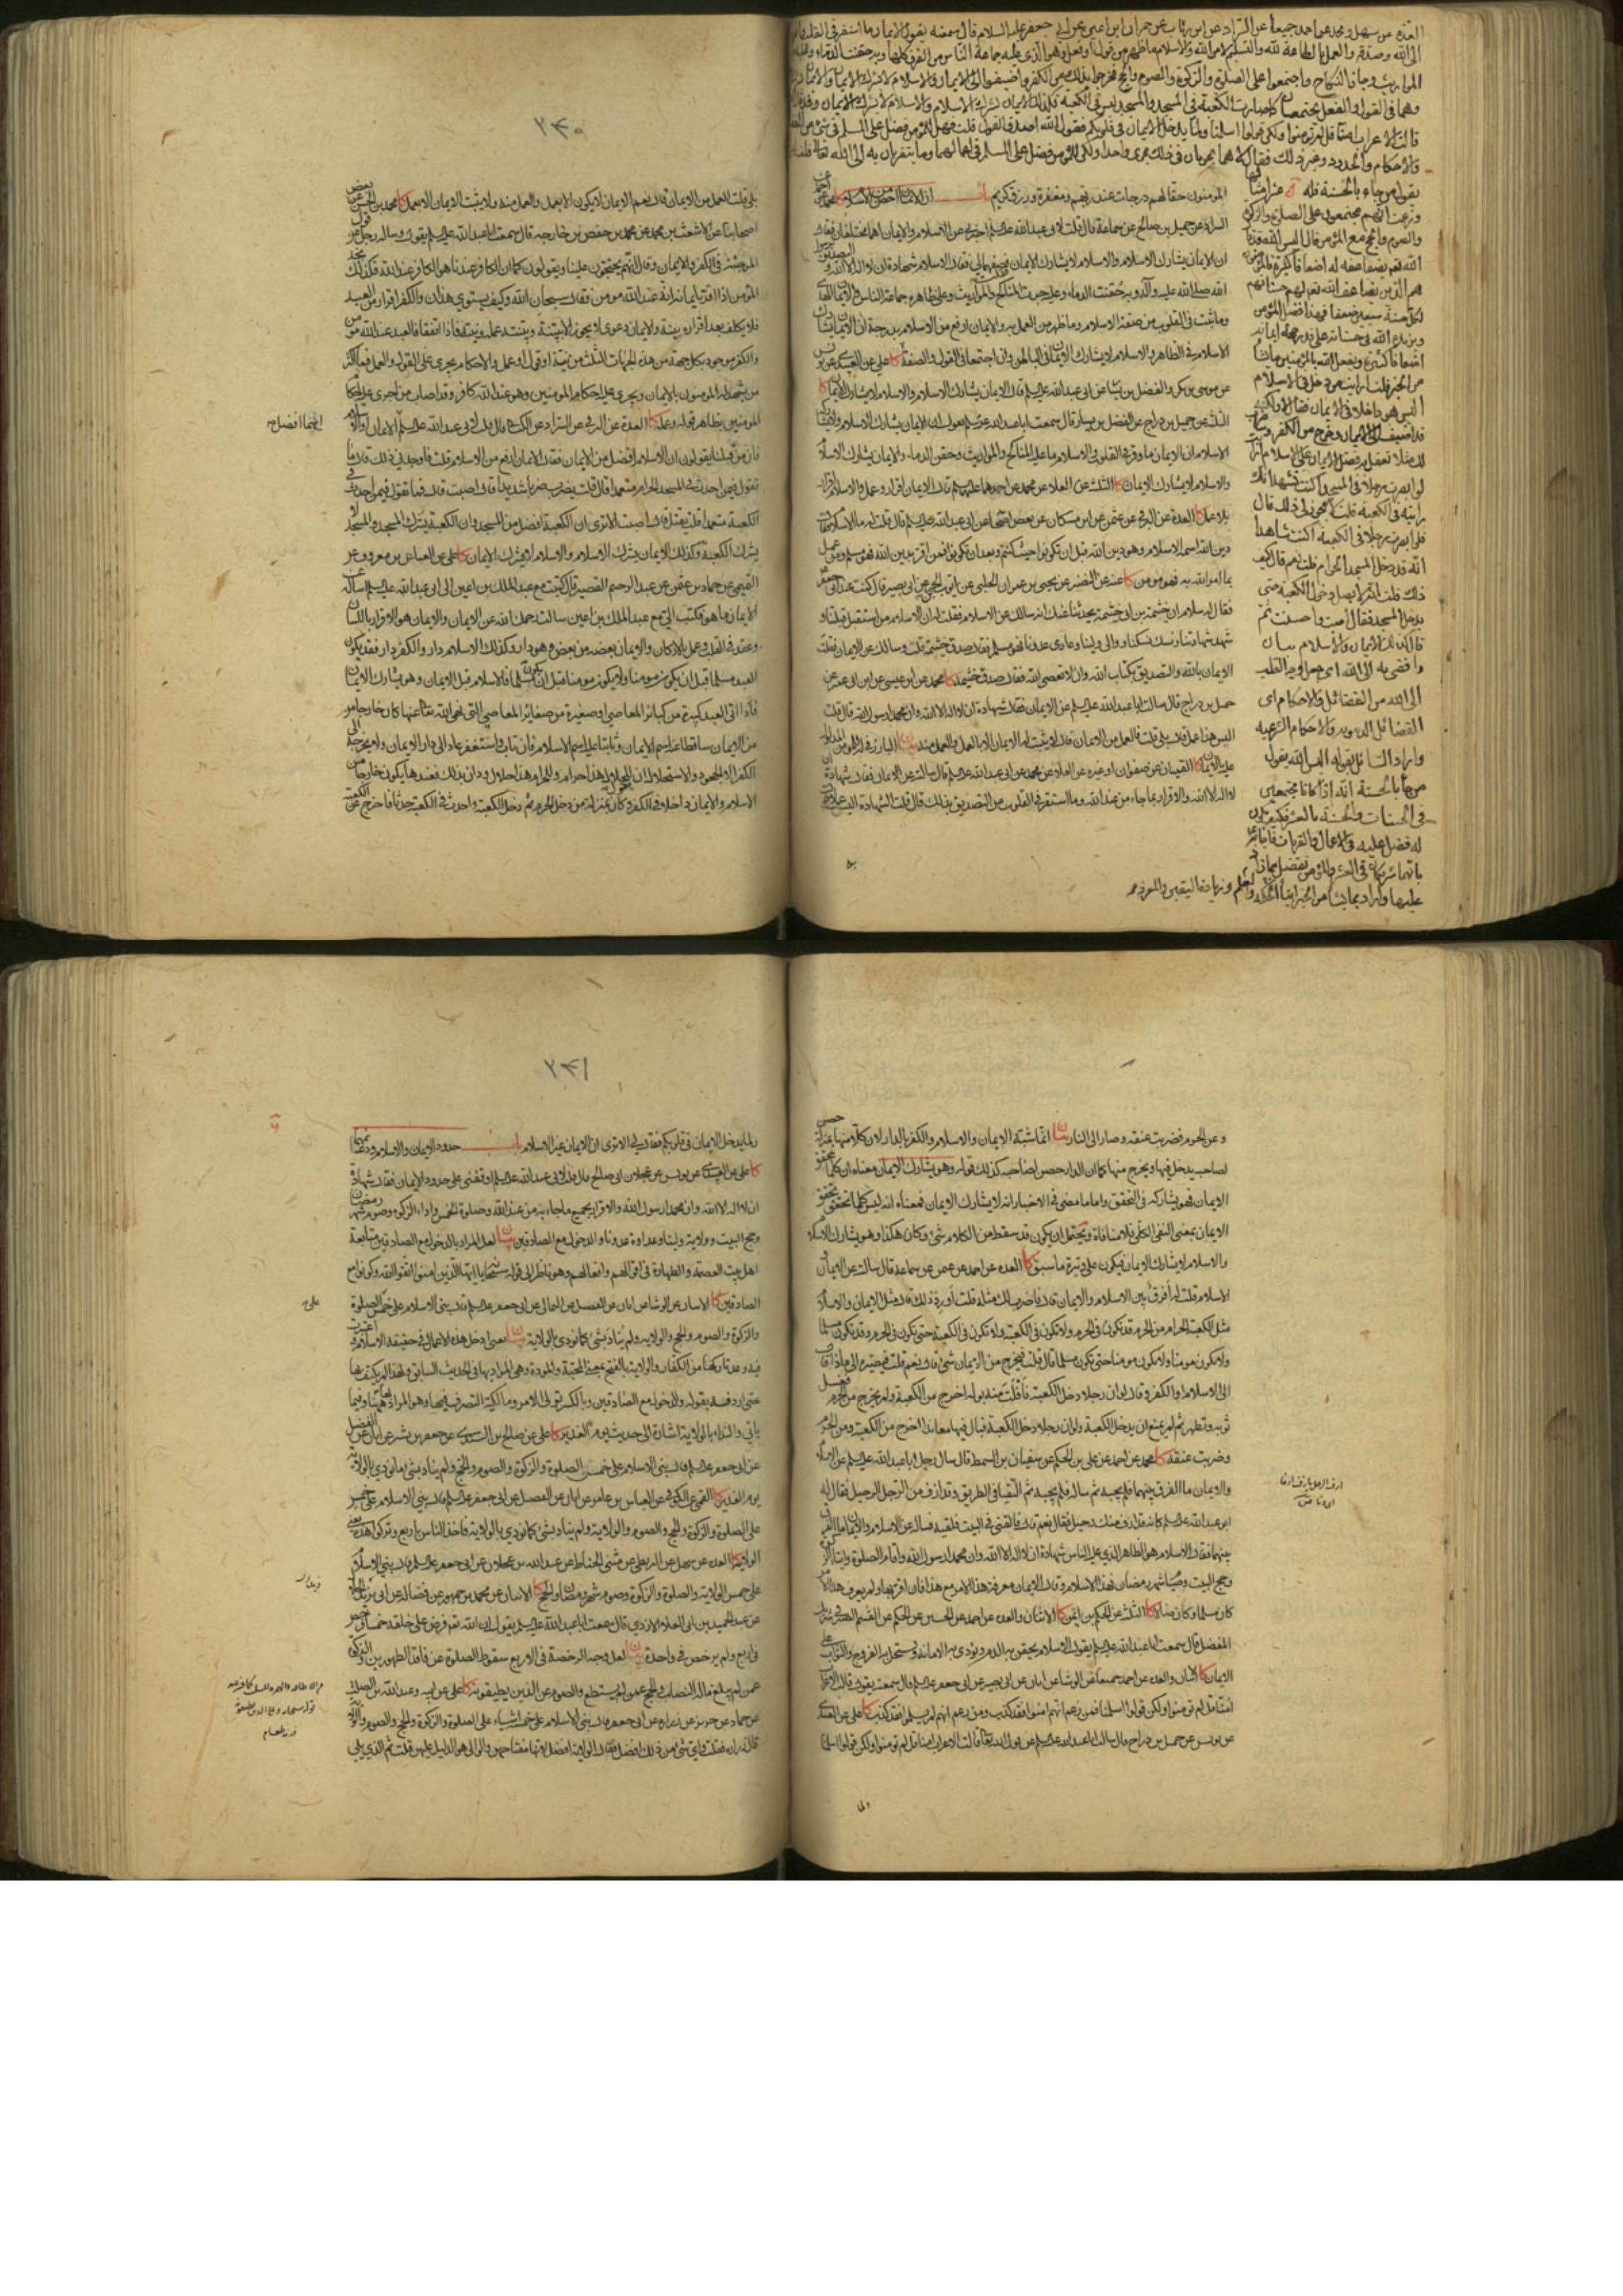 العدة عن سهل ومحمد عن احمد جميعا عن السراد عن ابن رئاب عن حمران ابن اعين عن ابي جعفر عليه السلام قال سمعته يقول الايمان ما استقر في القلب
الى الله وصدقه والعمل بالطاعة لله والتسليم لامر الله والاسلام ما ظهر من قول او فعل وهو الذي عليه جماعة الناس من الفرق كلها وبه حقنت الدماء وعليه
المواريث وجاز النكاح واجتمعوا على الصلوة والزكوة والصوم والحج فخرجوا بذلك من الكفر واضيفوا الى الايمان والاسلام لا يشرك الايمان والايمان
وهما في القول والفعل يجتمعان كما صارت الكعبة في المسجد والمسجد ليس في الكعبة وكذلك الايمان يشرك الاسلام والاسلام لا يشرك الايمان وقد قال
قالت الاعراب امنا قل لم تؤمنوا ولكن قولوا اسلمنا ولما يدخل الايمان في قلوبكم فقول الله اصدق القول قلت فهل للمؤمن فضل على المسلم في شيء من
والاحكام والحدود وغير ذلك فقال لا هما يجريان في ذلك مجرى واحدا ولكن للمؤمن فضل على المسلم في اعمالهما وما يتقربان به الى الله تعالى قلت
يقول من جاء بالحسنة فله عشر امثالها
وزعمت انهم مجتمعون على الصلوة والزكوة
والصوم والحج مع المؤمن قال اليس الله قد قال
الله تعم يضاعفه له اضعافا كثيرة فالمؤمنون
هم الذين يضاعف الله تعم لهم حسناتهم
لكل حسنة سبعين ضعفا فهذا فضل المؤمن
ويزيده الله في حسناته على قدر صحة ايمانه
اضعافا كثيرة ويفعل الله بالمؤمنين ما يشاء
من الخير قلت ارايت من دخل في الاسلام
اليس هو داخلا في الايمان فقال لا ولكنه
قد اضيف الى الايمان وخرج من الكفر
لك مثلا تعقل به فضل الايمان على الاسلام
لو ابصرت رجلا في المسجد اكنت تشهد انك
رايته في الكعبة قلت لا يجوز لي ذلك قال
فلو ابصرت رجلا في الكعبة اكنت شاهدا
انه قد دخل المسجد الحرام قلت نعم قال كيف
ذلك قلت انه لا يصل دخول الكعبة حتى
يدخل المسجد فقال اصبت واحسنت ثم
قال كذلك الايمان والاسلام بيان
وافضى به الى الله اي جعل وجه القلب
الى الله من الفضائل والاحكام اي
الفضائل الدنيوية والاحكام الشرعية
واراد السائل بقوله اليس الله يقول
من جاء بالحسنة انه اذا كانا مجتمعين
في الحسنات والحسنة بالعشر فكيف يكون
له فضل عليه في الاعمال والقربات
عليها واراد بما يشاء من الخير
المؤمنون حقا لهم درجات عند ربهم ومغفرة ورزق كريم باب ان الايمان اخص من الاسلام كا محمد عن احمد عن
السراد عن جميل بن صالح عن سماعة قال قلت لابي عبد الله عليه السلام اخبرني عن الاسلام والايمان اهما مختلفان فقال
ان الايمان يشارك الاسلام والاسلام لا يشارك الايمان فقلت فصفهما لي فقال الاسلام شهادة ان لا اله الا الله والتصديق برسول
الله صلى الله عليه وآله به حقنت الدماء وعليه جرت المناكح والمواريث وعلى ظاهره جماعة الناس والايمان الهدى
وما يثبت في القلوب من صفة الاسلام وما ظهر من العمل به والايمان ارفع من الاسلام بدرجة ان الايمان يشارك
الاسلام في الظاهر والاسلام لا يشارك الايمان في الباطن وان اجتمعا في القول والصفة كا علي عن العبيدي عن يونس
عن موسى بن بكر والفضيل بن يسار عن ابي عبد الله عليه السلام قال الايمان يشارك الاسلام والاسلام لا يشارك الايمان كا
الثلثة عن جميل بن دراج عن الفضيل بن يسار قال سمعت ابا عبد الله عليه السلام يقول ان الايمان يشارك الاسلام ولا يشاركه
الاسلام ان الايمان ما وقر في القلوب والاسلام ما عليه المناكح والمواريث وحقن الدماء والايمان يشارك الاسلام
والاسلام لا يشارك الايمان كا الثلثة عن العلاء عن محمد عن احدهما عليهما السلام قال الايمان اقرار وعمل والاسلام اقرار
بلا عمل كا العدة عن البرقي عن عثمن عن ابن مسكان عن بعض اصحابنا عن ابي عبد الله عليه السلام قال قلت له ما الاسلام فقال
دين الله اسمه الاسلام وهو دين الله قبل ان تكونوا حيث كنتم وبعد ان تكونوا فمن اقر بدين الله فهو مسلم ومن عمل
بما امر الله به فهو مؤمن كا عنه عن النضر عن يحيى بن عمران الحلبي عن ايوب بن الحر عن ابي بصير قال كنت عند ابي جعفر
فقال له سلام ان خيثمة بن ابي خيثمة يحدثنا عنك انه سالك عن الاسلام فقلت له ان الاسلام من استقبل قبلتنا
وشهد شهادتنا ونسك نسكنا ووالى ولينا وعادى عدونا فهو مسلم فقال صدق خيثمة قلت وسالك عن الايمان فقلت
الايمان بالله والتصديق بكتاب الله وان لا تعصي الله فقال صدق خيثمة كا محمد عن ابن عيسى عن ابن ابي عمير عن
جميل بن دراج قال سالت ابا عبد الله عليه السلام عن الايمان فقال شهادة ان لا اله الا الله وان محمدا رسول الله قال قلت
اليس هذا عمل قال بلى قلت فالعمل من الايمان قال لا يثبت له الايمان الا بالعمل والعمل منه بيان
عليه الايمان كا القميان عن صفوان او غيره عن العلاء عن محمد عن ابي عبد الله عليه السلام قال سالته عن الايمان فقال شهادة
ان لا اله الا الله والاقرار بما جاء من عند الله وما استقر في القلوب من التصديق بذلك قال قلت الشهادة اليست عملا قال
٢٣٠
بلى قلت العمل من الايمان قال نعم الايمان لا يكون الا بعمل والعمل منه ولا يثبت الايمان الا بعمل كا محمد بن الحسن عن بعض
اصحابنا عن الاشعث بن محمد عن محمد بن حفص بن خارجة قال سمعت ابا عبد الله عليه السلام يقول وساله رجل عن قول
المرجئة في الكفر والايمان وقال انهم يحتجون علينا ويقولون كما ان الكافر عندنا هو الكافر عند الله فكذلك نجد
المؤمن اذا اقر بايمانه انه عند الله مؤمن فقال سبحان الله وكيف يستوي هذان والكفر اقرار من العبد
فلا يكلف بعد اقراره ببينة والايمان دعوى لا يجوز الا ببينة وبينته عمله ونيته فاذا اتفقا فالعبد عند الله مؤمن
والكفر موجود بكل جهة من هذه الجهات الثلث من نية او قول او عمل والاحكام تجري على القول والعمل فما اكثر
من يشهد له المؤمنون بالايمان ويجري عليه احكام المؤمنين وهو عند الله كافر وقد اصاب من اجرى عليه احكام
المؤمنين بظاهر قوله وعمله كا العدة عن البرقي عن السراد عن الكناني قال قلت لابي عبد الله عليه السلام الايمان او الاسلام
ايهما افضل
فان من قبلنا يقولون ان الاسلام افضل من الايمان فقال الايمان ارفع من الاسلام قلت فاوجدني ذلك قال ما
تقول فيمن احدث في المسجد الحرام متعمدا قال قلت يضرب ضربا شديدا قال اصبت قال فما تقول فيمن احدث في
الكعبة متعمدا قلت يقتل قال اصبت الا ترى ان الكعبة افضل من المسجد وان الكعبة يشرك المسجد والمسجد لا
يشرك الكعبة وكذلك الايمان يشرك الاسلام والاسلام لا يشرك الايمان كا علي عن العباس بن معروف عن
التميمي عن حماد بن عثمن عن عبد الرحيم القصير قال كتبت مع عبد الملك بن اعين الى ابي عبد الله عليه السلام اساله عن
الايمان ما هو فكتب الي مع عبد الملك بن اعين سالت رحمك الله عن الايمان والايمان هو الاقرار باللسان
وعقد في القلب وعمل بالاركان والايمان بعضه من بعض وهو دار وكذلك الاسلام دار والكفر دار فقد يكون
العبد مسلما قبل ان يكون مؤمنا ولا يكون مؤمنا قبل ان يكون مسلما فالاسلام قبل الايمان وهو يشارك الايمان
فاذا اتى العبد كبيرة من كبائر المعاصي او صغيرة من صغائر المعاصي التي نهى الله تعالى عنها كان خارجا من
من الايمان ساقطا عنه اسم الايمان وثابتا عليه اسم الاسلام فان تاب واستغفر عاد الى دار الايمان ولا يخرجه الى
الكفر الا الجحود والاستحلال ان يقول للحلال هذا حرام وللحرام هذا حلال ودان بذلك فعندها يكون خارجا من
الاسلام والايمان داخلا في الكفر وكان بمنزلة من دخل الحرم ثم دخل الكعبة واحدث في الكعبة حدثا فاخرج عن الكعبة
وعن الحرم فضربت عنقه وصار الى النار بيان انما شبه الايمان والاسلام والكفر بالدار لان كلا منها بمنزلة حصن
لصاحبه يدخل فيها ويخرج منها كما ان الدار حصن لصاحبه كذلك قوله وهو يشارك الايمان معناه ان كلما تحقق
الايمان فهو يشاركه في التحقق واما ما مضى في الاخبار انه لا يشارك الايمان فمعناه انه ليس كلما تحقق تحقق
الايمان بمعنى النفي الكلي فلا منافاة ويحتمل ان يكون قد سقط من الكلام شيء وكان هكذا وهو يشارك الاسلام
والاسلام لا يشارك الايمان فيكون على وتيرة ما سبق كا العدة عن احمد عن عثمن عن سماعة قال سالته عن الايمان و
الاسلام قلت له افرق بين الاسلام والايمان قال فاضرب لك مثله قلت اورد ذلك قال مثل الايمان والاسلام
مثل الكعبة الحرام من الحرم قد تكون في الحرم ولا تكون في الكعبة ولا تكون في الكعبة حتى تكون في الحرم وقد تكون مسلما
ولا تكون مؤمنا ولا تكون مؤمنا حتى تكون مسلما قال قلت فيخرج من الايمان شيء قال نعم قلت فيصيره الى ماذا قال
الى الاسلام او الكفر وقال لو ان رجلا دخل الكعبة فافلت منه بوله اخرج من الكعبة ولم يخرج من الحرم فغسل
ثوبه وتطهر ثم لم يمنع ان يدخل الكعبة ولو ان رجلا دخل الكعبة فبال فيها معاندا اخرج من الكعبة ومن الحرم
وضربت عنقه كا محمد عن احمد عن علي بن الحكم عن سفيان بن السمط قال سال رجل ابا عبد الله عليه السلام عن الاسلام
والايمان ما الفرق بينهما فلم يجبه ثم ساله فلم يجبه ثم التقيا في الطريق وقد ازف من الرجل الرحيل فقال له
ابو عبد الله عليه السلام كانه قد ازف منك رحيل فقال نعم قال فالقني في البيت فلقيه فساله عن الاسلام والايمان ما الفرق
بينهما فقال الاسلام هو الظاهر الذي عليه الناس شهادة ان لا اله الا الله وان محمدا رسول الله واقام الصلوة وايتاء الزكوة
وحج البيت وصيام شهر رمضان فهذا الاسلام وقال الايمان معرفة هذا الامر مع هذا فان اقر بها ولم يعرف هذا الامر
كان مسلما وكان ضالا كا الثلثة عن الحكم بن ايمن كا الاثنان والعدة عن احمد عن الحسين عن الحكم عن القسم الصيرفي شريك
المفضل قال سمعت ابا عبد الله عليه السلام يقول الاسلام يحقن به الدم ويؤدى به الامانة ويستحل به الفروج والثواب على
الايمان كا الاثنان والعدة عن احمد جميعا عن الوشاء عن ابان عن ابي بصير عن ابي جعفر عليه السلام قال سمعته يقول قالت الاعراب
امنا قل لم تؤمنوا ولكن قولوا اسلمنا فمن زعم انهم امنوا فقد كذب ومن زعم انهم لم يسلموا فقد كذب كا علي عن العبيدي
عن يونس عن جميل بن دراج قال سالت ابا عبد الله عليه السلام عن قول الله تعالى قالت الاعراب امنا قل لم تؤمنوا ولكن قولوا اسلمنا
ولما
٢٣١
ولما يدخل الايمان في قلوبكم فقال لي الا ترى ان الايمان غير الاسلام باب حدود الايمان والاسلام ودعائمهما
كا علي عن العبيدي عن يونس عن عجلان ابي صالح قال قلت لابي عبد الله عليه السلام اوقفني على حدود الايمان فقال شهادة
ان لا اله الا الله وان محمدا رسول الله والاقرار بجميع ما جاء به من عند الله وصلوة الخمس واداء الزكوة وصوم شهر رمضان
وحج البيت وولاية ولينا وعداوة عدونا والدخول مع الصادقين بيان لعل المراد بالدخول مع الصادقين متابعة
اهل بيت العصمة والطهارة في اقوالهم وافعالهم وهو ناظر الى قوله سبحانه يا ايها الذين امنوا اتقوا الله وكونوا مع
الصادقين كا الاثنان عن الوشاء عن ابان عن الفضيل عن الثمالي عن ابي جعفر عليه السلام قال بني الاسلام على خمس الصلوة
والزكوة والصوم والحج والولاية ولم يناد بشيء كما نودي بالولاية بيان يعني ادخل هذه الاعمال في حقيقة الاسلام و
فيه وعد تاركها من الكفار والولاية بالفتح بمعنى المحبة والمودة وهي المراد بها في الحديث السابق ولهذا لم يكتف بها
حتى اردفه بقوله والدخول مع الصادقين وبالكسر تولي الامر ومالكية التصرف فيه وهو المراد بها هنا وفيما
ياتي والنداء بالولاية اشارة الى حديث يوم الغدير كا علي عن صالح بن السندي عن جعفر بن بشير عن ابان عن الفضيل
عن ابي جعفر عليه السلام قال بني الاسلام على خمس الصلوة والزكوة والصوم والحج والولاية ولم يناد بشيء ما نودي بالولاية
يوم الغدير كا القمي عن الكوفي عن العباس بن عامر عن ابان عن الفضيل عن ابي جعفر عليه السلام قال بني الاسلام على خمس
على الصلوة والزكوة والحج والصوم والولاية ولم يناد بشيء كما نودي بالولاية فاخذ الناس باربع وتركوا هذه يعني
الولاية كا العدة عن سهل عن البزنطي عن مثنى الحناط عن عبد الله بن عجلان عن ابي جعفر عليه السلام قال بني الاسلام
على خمس الولاية والصلوة والزكوة وصوم شهر رمضان والحج كا الاثنان عن محمد بن جمهور عن فضالة عن ابي زيد الحلال
عن عبد الحميد بن ابي العلاء الازدي قال سمعت ابا عبد الله عليه السلام يقول ان الله تعم فرض على خلقه خمسا فرخص
في اربع ولم يرخص في واحدة بيان لعل وجه الرخصة في الاربع سقوط الصلوة عن فاقد الطهورين والزكوة
عمن لم يبلغ ماله النصاب والحج عمن لم يستطع والصوم عن الذين يطيقونه كا علي عن ابيه وعبد الله بن الصلت
عن حماد عن حريز عن زرارة عن ابي جعفر عليه السلام قال بني الاسلام على خمسة اشياء على الصلوة والزكوة والحج والصوم والولاية
قال زرارة فقلت واي شيء من ذلك افضل فقال الولاية افضل لانها مفتاحهن والوالي هو الدليل عليهن قلت ثم الذي يلي